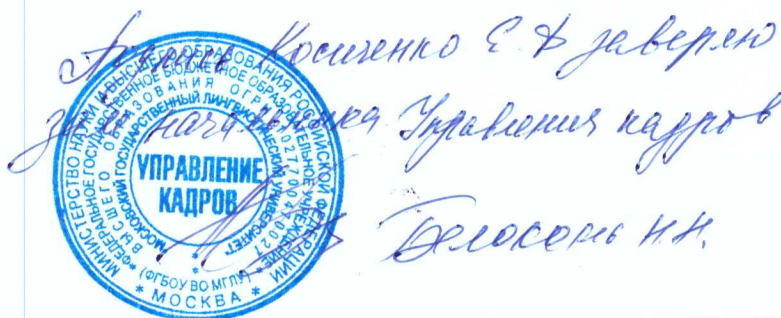 Подпись Косиченко Е Ф заверяю
зам начальника Управления кадров
Белоконь Н.Н.
МИНИСТЕРСТВО НАУКИ И ВЫСШЕГО ОБРАЗОВАНИЯ РОССИЙСКОЙ ФЕДЕРАЦИИ
* МОСКВА *
ФЕДЕРАЛЬНОЕ ГОСУДАРСТВЕННОЕ БЮДЖЕТНОЕ ОБРАЗОВАТЕЛЬНОЕ УЧРЕЖДЕНИЕ
(ФГБОУ ВО МГЛУ)
ВЫСШЕГО ОБРАЗОВАНИЯ
"МОСКОВСКИЙ ГОСУДАРСТВЕННЫЙ ЛИНГВИСТИЧЕСКИЙ УНИВЕРСИТЕТ"
УПРАВЛЕНИЕ
КАДРОВ